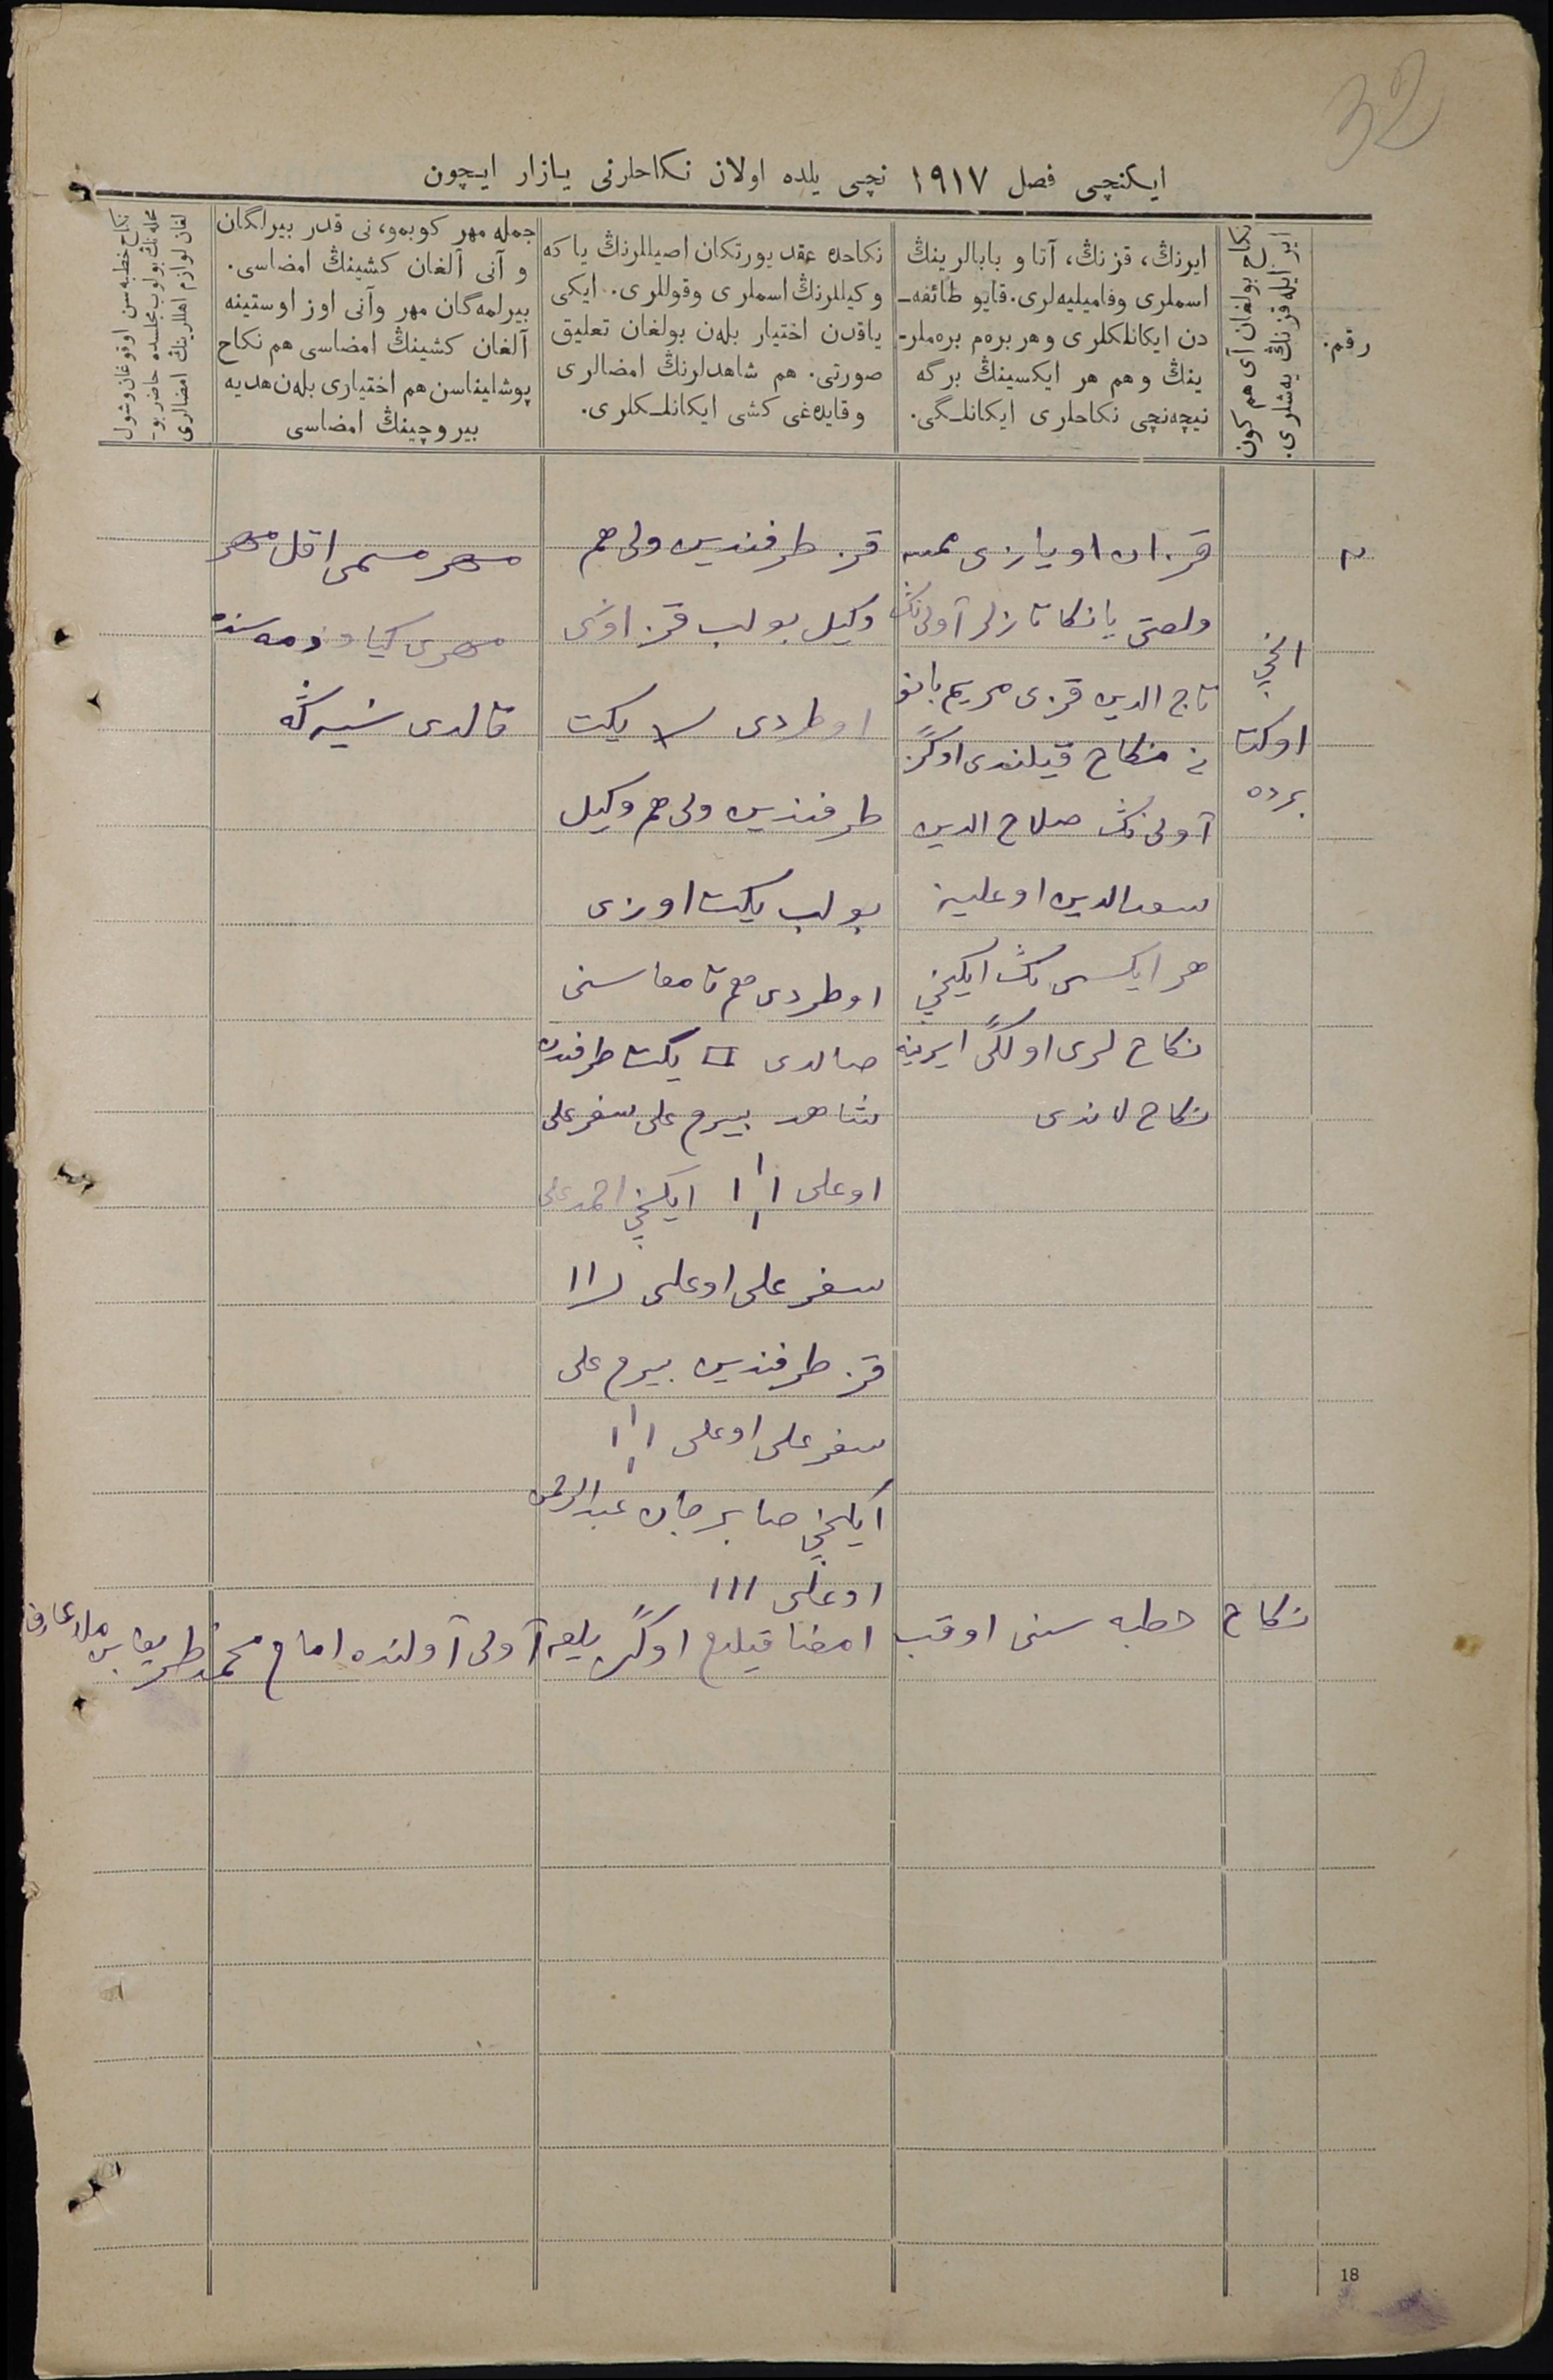 32
ایکنچی فصل ١٩١٧ نچی یلده اولان نکاحلرنی یازار ایچون
رقم.
نکاح بولغان آی هم کون
ایر ایله قزنڭ یه‌شلری.
ایرنڭ، قزنڭ، آتا و بابالرینڭ
اسملری وفامیلیه‌لری. قایو طائفه‌ـ
دن ایکانلکلری و هر بره‌م بره‌ملرـ
ینڭ و هم هر ایکسینڭ برگه
نیچه‌نچی نکاحلری ایکانلـگی.
نکاحده عقد یورتکان اصیللرنڭ یا که
وکیللرنڭ اسملری وقوللری. ایکی
یاقدن اختیار بله‌ن بولغان تعلیق
صورتی. هم شاهدلرنڭ امضالری
و قایده‌غی کشی ایکانلـکلری.
جمله مهر کوبمو، نی قدر بیرلگان
و آنی آلغان کشینڭ امضاسی.
بیرلمه‌گان مهر وآنی اوز اوستینه
آلغان کشینڭ امضاسی هم نکاح
پوشلیناسن هم اختیاری بله‌ن هدیه
بیروچینڭ امضاسی
نکاح خطبه‌سن اوقوغان وشول
محله‌نڭ بولوب مجلسده حاضر بوـ
لغان لوازم اهللرینڭ امضالری
٢
انچی
اوکتا
برده
قزان اویازی
ولصتی یانکا تازلر آولی نڭ
تاج الدین قزی مریم بانو
نی نکاح قیلندی اوکز
آولی نڭ صلاح الدین
سعدالدین اوعلینه
هر ایکسی نڭ ایکنچی
نکاح لری اولگی ایرینه
نکاح لاندی
قز طرفندین ولی هم
وکیل بولب قز اوزی
اوطردی یکت
طرفندین ولی هم وکیل
بولب یکت اوزی
اوطردی هم تامغاسنی
صالدی یکت طرفندن
شاهد بیرم علی سفر علی
اوعلی ایکنچی احمد علی
سفر علی اوعلی
قز طرفندین بیرم علی
سفر علی اوعلی
ایکنچی صابر جان عبدالرحمن
اوغلی ااا
مهر مسمی اقل مهر
مهری کیاو ذمه سنده
قالدی
نکاح خطبه سنی اوقب امضا قیلدم اوکز آولی آولنده امام محمد ملا عارف
18